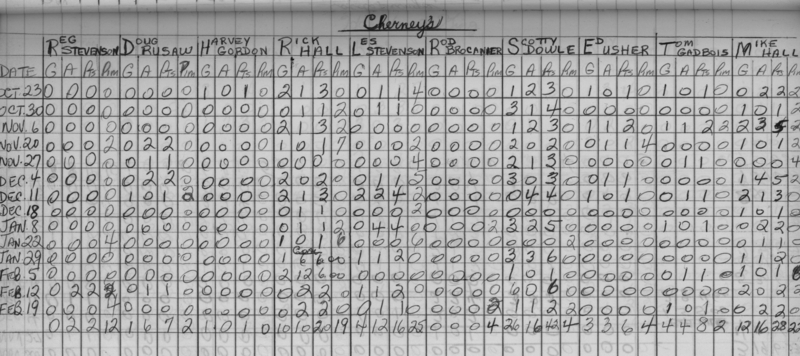 Cherney's
REG STEVENSON DOUG RUSAW HARVEY GORDON RICK HALL LES STEVENSON ROD BROCANIER SCOTTY DOWLE ED USHER TOM GADBOIS MIKE HALL
DATE G A Pts Pim G A Pts Pim G A Pts Pim G A Pts Pim G A Pts Pim G A Pts Pim G A Pts Pim G A Pts Pim G A Pts Pim G A Pts Pim
OCT. 23 0 0 0 0 0 0 0 0 1 0 1 0 2 1 3 0 0 1 1 4 0 0 0 0 1 2 3 0 1 0 1 0 1 0 1 0 0 2 2 2
OCT. 30 0 0 0 0 0 0 0 0 0 0 0 0 0 1 1 2 0 1 1 0 0 0 0 0 3 1 4 0 0 0 0 0 0 0 0 1 0 1 2
NOV. 6 0 0 0 0 0 0 0 0 0 0 0 0 2 1 3 2 0 0 0 0 0 0 0 0 1 2 3 0 1 1 2 0 1 1 2 2 2 3 5 2
NOV. 20 0 0 0 2 0 2 2 0 0 0 0 0 1 0 1 7 0 0 0 2 0 0 0 0 2 0 2 0 0 1 1 4 0 0 0 0 1 0 1 2
NOV. 27 0 0 0 0 0 1 1 0 0 0 0 0 0 0 0 0 0 0 4 0 0 0 0 2 1 3 0 0 0 0 0 0 1 1 0 0 0 0 4
DEC. 4 0 0 0 0 0 2 2 0 0 0 0 0 2 0 2 0 0 1 1 5 0 0 0 0 3 0 3 0 0 1 1 0 0 0 0 0 1 4 5 2
DEC. 11 0 0 0 0 1 0 1 2 0 0 0 0 2 1 3 0 2 2 4 2 0 0 0 0 0 4 4 0 1 0 1 0 0 1 1 0 2 1 3 0
DEC. 18 0 0 0 0 0 0 0 0 0 0 0 0 0 1 1 0 0 0 0 2 0 0 0 0 0 0 0 0 0 0 0 0 0 0 0 0 1 0 1 0
JAN. 8 0 0 0 0 0 0 0 0 0 0 0 0 0 1 1 2 0 4 4 0 0 0 0 2 3 2 5 0 0 0 0 0 1 0 1 0 0 2 2 0
JAN. 22 0 0 0 4 0 0 0 0 0 0 0 0 1 0 1 6 0 0 0 6 0 0 0 0 0 0 0 2 0 0 0 0 0 0 0 0 0 1 1
JAN. 29 0 0 0 0 0 0 0 0 0 0 0 0 0 0 1 1 2 0 0 0 0 0 3 3 6 0 0 0 0 0 0 0 0 0 1 1 2 0
FEB. 5 0 0 0 0 0 0 0 0 0 0 0 0 0 0 0 0 0 0 0 0 1 0 1 0 0 0 0 0 0 1 1 1 0 1
FEB. 12 0 2 2 2 0 1 1 0 0 0 0 0 0 2 2 0 1 1 2 0 0 0 0 0 6 0 6 0 0 0 0 0 0 0 0 2 0 2 2
FEB. 19 0 0 0 4 0 0 0 0 0 0 0 0 0 2 2 0 0 1 1 0 0 0 0 2 1 1 2 2 0 0 0 0 1 0 1 0 0 2 2 0
0 2 2 12 1 6 7 2 1 0 1 0 10 10 20 19 4 12 16 25 0 0 0 4 26 16 42 4 3 3 6 4 4 4 8 2 12 16 28 22